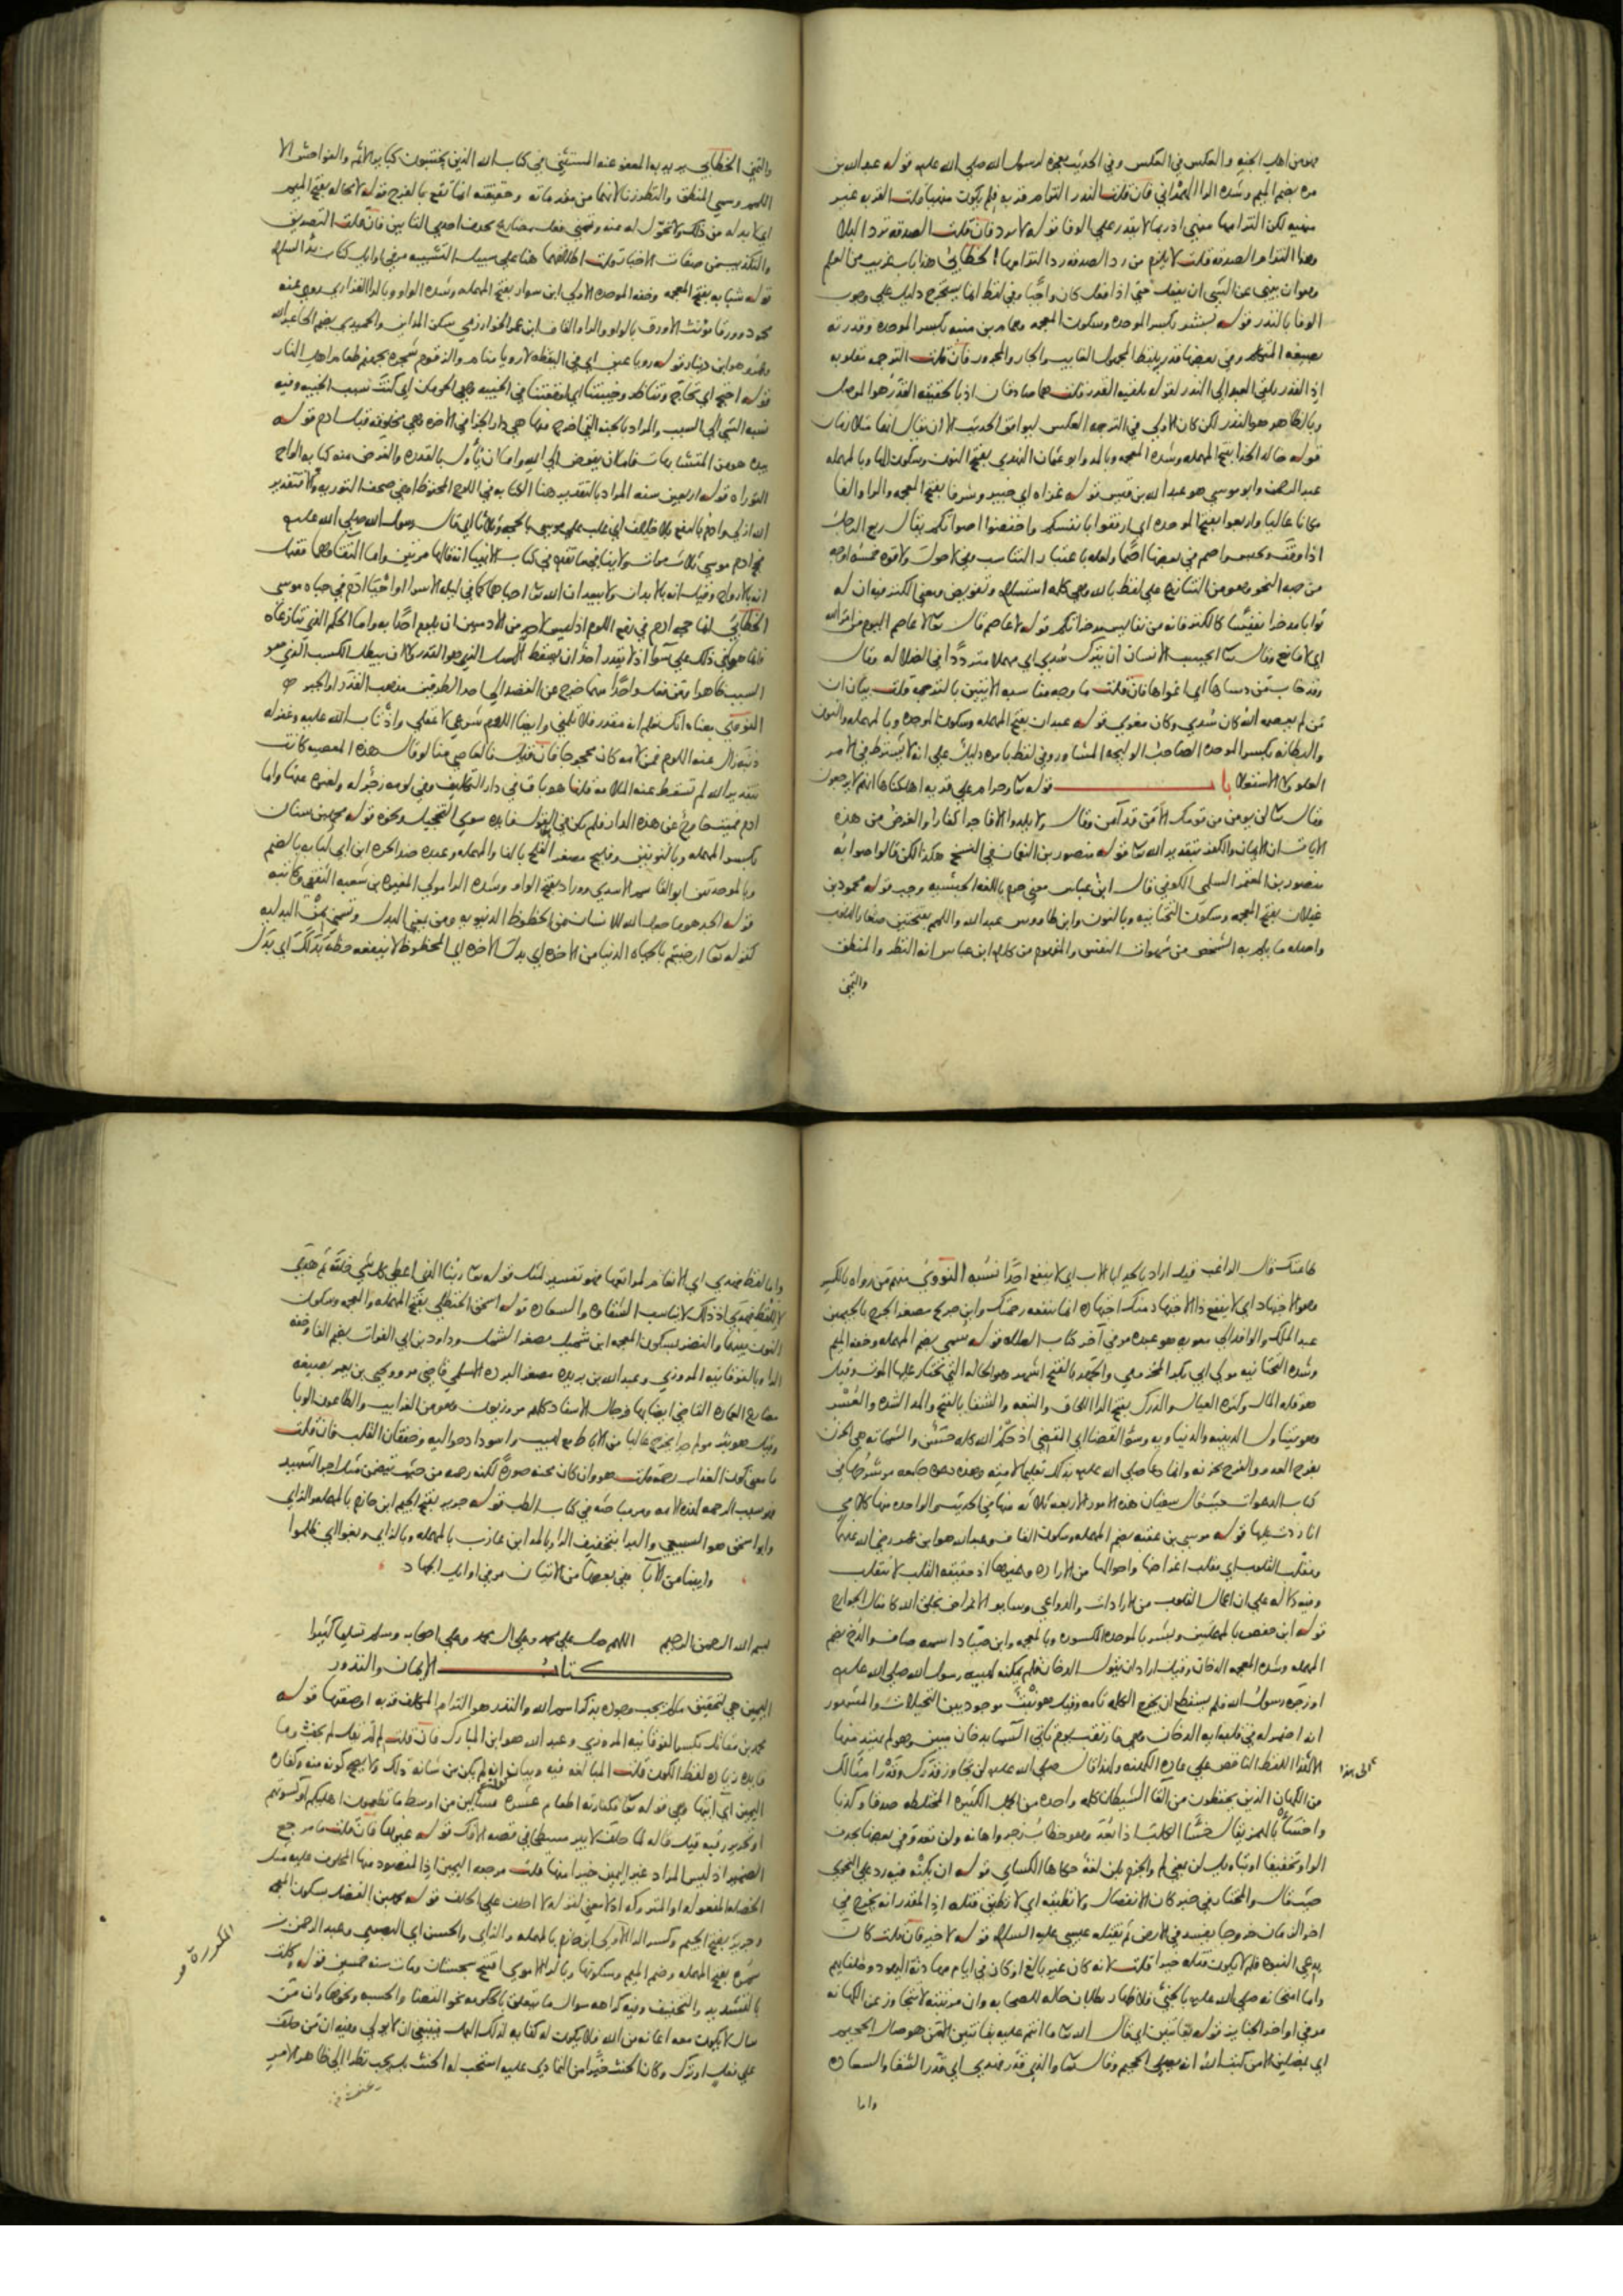 هو من اهل الجنه والعكس في العكس وفي الحديث معجزة لرسول الله صلى الله عليه قوله عبد الله بن
مره بضم الميم وشده الراء الهمداني فان قلت النذر التزام قربه فلم يكون منهيا قلت القربه غير
منهيه لكن التزامها منهي اذ ربما لا يقدر على الوفا قوله لا يرد فان قلت الصدقه ترد البلا
وهذا التزام الصدقه قلت لا يلزم من رد الصدقه رد التزامها الخطابي هذا باب غريب من العلم
وهو ان ينهى عن الشي ان يفعل حتى اذا فعل كان واجبا وفي لفظ انما يستخرج دليل على وجوب
الوفا بالنذر قوله بشر بكسر الموحده وسكون المعجمه وهمام بن منبه بكسر الموحده وقدرته
بصيغه المتكلم وفي بعضها قدر بلفظ المجهول الغايب والجار والمجرور فان قلت الترجمه مقلوبه
اذ القدر يلقي العبد الى النذر لقوله يلقيه القدر قلت هما صادقان اذ بالحقيقه القدر هو الموصل
وبالظاهر هو النذر لكن كان الاولى في الترجمه العكس ليوافق الحديث الا ان يقال انهما متلازمان
قوله خالد الحذا بفتح المهمله وشده المعجمه وبالمد وابو عثمان النهدي بفتح النون وسكون الها وبالمهمله
عبد الرحمن وابو موسى هو عبد الله بن قيس قوله غزاه اي خيبر وشرفا بفتح المعجمه والرا والفا
مكانا عاليا واربعوا بفتح الموحده اي ارفقوا بانفسكم واخفضوا اصواتكم يقال ربع الرجل
اذا وقف وتحبس واصم في بعضها اصما ولعله باعتبار التناسب وفي لا حول ولا قوه خمسه اوجه
من جهه النحو وهو من التنازع على لفظ بالله وهي كلمه استسلام وتفويض ومعنى الكنز فيه ان له
ثوابا مدخرا نفيسا كالكنز فانه من نفايس مدخراتكم قوله لا عاصم قال تعالى لا عاصم اليوم من امر الله
اي لا مانع وقال تعالى ايحسب الانسان ان يترك سدي اي مهملا مترددا في الضلاله وقال
وقد خاب من دساها اي اغواها فان قلت ما وجه مناسبه الايتين بالترجمه قلت بيان ان
من لم يعصمه الله كان سدي وكان مغوي قوله عبدان بفتح المهمله وسكون الموحده وبالمهمله والنون
والبطانه بكسر الموحده الصاحب الوليجه المشاور وفي لفظ يامره دليل على انه لا يشترط في الامر
العلو ولا الاستعلا باب قوله تعالى وحرام على قريه اهلكناها انهم لا يرجعون
وقال تعالى لن يومن من قومك الا من قد آمن وقال ولا يلدوا الا فاجرا كفارا والغرض من هذه
الايات ان الايمان والكفر بتقدير الله تعالى قوله منصور بن النعمان في النسخ هكذا لكن قالوا صوابه
منصور بن المعتمر السلمي الكوفي قال ابن عباس معنى حرم باللغه الحبشيه وجب قوله محمود بن
غيلان بفتح المعجمه وسكون التحتانيه وبالنون وابن طاووس عبد الله واللمم بفتحتين صغار الذنوب
واصله ما يلم به الشخص من شهوات النفس والمفهوم من كلام ابن عباس انه النظر والمنطق
والتمني
والتمني الخطابي يريد به المعفو عنه المستثنى في كتاب الله الذين يجتنبون كبائر الاثم والفواحش الا
اللمم وسمي المنطق والنظر زنا لانهما من مقدماته وحقيقته انما تقع بالفرج قوله لا محاله بفتح الميم
اي لا بد له من ذلك ولا تحول له منه وتمنى فعل مضارع بحذف احدى التائين فان قلت التصديق
والتكذيب من صفات الاخبار قلت اطلاقهما هنا على سبيل التشبيه مر في اوايل كتاب بدء السلام
قوله شبابه بفتح المعجمه وخفه الموحده الاولى ابن سوار بفتح المهمله وشده الواو وبالرا الفزاري روى عنه
محمود وورقا مؤنث الاورق بالواو والرا والقاف ابن عمر الخوارزمي سكن المداين والحميدي بضم الحا عبد الله
وعمرو هو ابن دينار قوله رويا عين اي في اليقظه لا رويا منام والزقوم شجره بجهنم طعام اهل النار
قوله احتج اي تحاج وتناظر وخيبتنا اي اوقعتنا في الخيبه وهي الحرمان اي كنت سبب الخيبه وفيه
نسبه الشي الى السبب والمراد بالجنه التي اخرج منها هي دار الجزا في الاخره وهي مخلوقه قبل ادم قوله
بيده هو من المتشابهات فاما ان يفوض الى الله واما ان يأول بالقدره والغرض منه كتابه الواح
التوراه قوله اربعين سنه المراد بالتقدير هنا الكتابه في اللوح المحفوظ او في صحف التوريه والا فتقدير
الله ازلي وادم بالرفع بلا خلاف اي غلب على موسى بالحجه وثلاثا اي قال رسول الله صلى الله عليه
حج ادم موسى ثلاث مرات ولا ينافي ما تقدم في كتاب الانبيا انه قالها مرتين واما التقاوهما فقيل
انه بالارواح وقيل انه بالابدان ولا يبعد ان الله تعالى احياهما كما في ليله الاسرا او احيا ادم في حياه موسى
الخطابي انما حجه ادم في رفع اللوم اذ ليس لاحد من الآدميين ان يلوم احدا به واما الحكم الذي تنازعاه
فانما هو في ذلك على سوا اذ لا يقدر احد ان يسقط الاصل الذي هو القدر ولا ان يبطل الكسب الذي هو
السبب ظاهرا ومن فعل واحدا منهما خرج عن القصد الى احد الطرفين مذهب القدر او الجبر
النووي معناه انك تعلم انه مقدر فلا تلمني وايضا اللوم شرعي لا عقلي واذا تاب الله عليه وغفر له
ذنبه زال عنه اللوم فمن لامه كان محجوجا فان قيل فالعاصي منا لو قال هذه المعصيه كانت
بتقدير الله لم تسقط عنه الملامه قلنا هو باق في دار التكليف وفي لومه زجر له ولغيره عنها واما
ادم فميت خارج عن هذه الدار فلم يكن في القول فايده سوى التخجيل ونحوه قوله محمد بن سنان
بكسر المهمله وبالنونين وفليح مصغر الفلح بالفا والمهمله وعبده ضد الحره ابن ابي لبابه بالضم
وبالموحدتين ابو القاسم الاسدي ووراد بفتح الواو وشده الرا مولى المغيره بن شعبه الثقفي وكاتبه
قوله الجد هو ما جعل الله للانسان من الحظوظ الدنيويه ومن بمعنى البدل وتسمى بمن البدليه
كقوله تعالى ارضيتم بالحياه الدنيا من الاخره اي بدل الاخره اي المحظوظ لا ينفعه حظه بذلك اي بدل
طاعتك قال الراغب قيل اراد بالجد ابا الاب اي لا ينفع احدا نسبه النووي منهم من رواه بالكسر
وهو الاجتهاد اي لا ينفع ذا الاجتهاد منك اجتهاده انما ينفعه رحمتك وابن جريج مصغر الجرج بالجيمين
عبد الملك والوافد الى معويه هو عبده مر في آخر كتاب الصلاه قوله سمي بضم المهمله وخفه الميم
وشده التحتانيه مولى ابي بكر المخزومي والجهد بالفتح اشهر وهو الحاله التي يختار عليها الموت وقيل
هو قله المال وكثره العيال والدرك بفتح الرا اللحاق والتبعه والشقا بالفتح والمد الشده والعسر
وهو يتناول الدينيه والدنياويه وسوء القضا اي المقضي اذ حكم الله كله حسن والشماته هي الحزن
بفرح العدو والفرح بحزنه وانما دعا صلى الله عليه بذلك تعليما لامته وهذه دعوه جامعه مر شرحها في
كتاب الدعوات حيث قال سفيان هذه الامور الاربعه ثلاثه منها في الحديث والواحده منها كلامي
انا زدت عليها قوله موسى بن عقبه بضم المهمله وسكون القاف وعبد الله هو ابن عمر رضي الله عنهما
ومقلب القلوب اي مقلب اغراضها واحوالها من الاراده وغيرها اذ حقيقه القلب لا تنقلب
وفيه دلاله على ان اعمال القلوب من الارادات والدواعي وساير الاعراض بخلق الله كافعال الجوارح
قوله ابن حفص بالمهملتين وبشر بالموحده المكسوره وبالمعجمه وابن صياد اسمه صاف والدخ بضم
المهمله وشده المعجمه الدخان وقيل اراد ان يقول الدخان فلم يمكنه لهيبه رسول الله صلى الله عليه
او زجره رسول الله فلم يستطع ان يخرج الكلمه تامه وقيل هو نبت موجود بين النخيلات والمشهور
انه اضمر له في قلبه ايه الدخان وهي فارتقب يوم تاتي السما بدخان مبين وهو لم يهتد منها
الا لهذا اللفظ الناقص على عاده الكهنه ولهذا قال صلى الله عليه لن تجاوز قدرك وقدر امثالك
من الكهان الذين يحفظون من القا الشيطان كلمه واحده من الجمل الكثيره المختلطه صدقا وكذبا
واخسأ بالهمز يقال خسأ الكلب اذا بعد وهو خطاب زجر واهانه ولن تعدو في بعضها بحذف
الواو تخفيفا او بتاويل لن بمعنى لم والجزم بلن لغه حكاها الكسائي قوله ان يكنه فيه رد على النحوي
حيث قال والمختار في خبر كان الانفصال ولا تطيقه اي لا تطيق قتله اذ المقدر انه يخرج في
اخر الزمان خروجا يفسد في الارض ثم يقتله عيسى عليه السلام قوله لا خير فان قلت كان
يدعي النبوه فلم لا يكون قتله خيرا قلت لانه كان غير بالغ او كان في ايام مهادنه اليهود وحلفايهم
واما امتحانه صلى الله عليه بالخبئ فلاظهار بطلان حاله للصحابه وان مرتبته لا تتجاوز عن الكهانه
مر في اواخر الجنايز قوله بفاتنين اي قال الله تعالى ما انتم عليه بفاتنين الا من هو صال الجحيم
اي بمضلين الا من كتب الله انه يصلى الجحيم وقال تعالى والذي قدر فهدى اي قدر الشقا والسعاده
واما
واما لفظ فهدى اي الانعام لمراتعها فهو تفسير لمثل قوله تعالى ربنا الذي اعطى كل شي خلقه ثم هدى
لا للفظ فهدى اذ ذلك لا يناسب الشقاوه والسعاده قوله اسحق الحنظلي بفتح المهمله والمعجمه وسكون
النون بينهما والنضر بسكون المعجمه ابن شميل مصغر الشمل وداود بن ابي الفرات بضم الفا وخفه
الرا وبالفوقانيه المروزي وعبد الله بن بريده مصغر البرده الاسلمي قاضي مرو ويحيى بن يعمر بصيغه
مضارع العماره القاضي ايضا بها فرجال الاسناد كلهم مروزيون وهو من الغرايب والطاعون الوبا
وقيل هو بثر مولم جدا يخرج غالبا من الاباط مع لهيب واسوداد حواليه وخفقان القلب فان قلت
ما معنى كون العذاب رحمه قلت هو وان كان محنه صوره لكنه رحمه من حيث يتضمن مثل اجر الشهيد
فهو سبب الرحمه لهذه الامه ومر مباحثه في كتاب الطب قوله جرير بفتح الجيم ابن حازم بالمهمله والزاي
وابو اسحق هو السبيعي والبرا بتخفيف الرا وبالمد ابن عازب بالمهمله وبالزاي وبغوا اي ظلموا
وابينا من الابا وفي بعضها من الاتيان مر في اوايل الجهاد
بسم الله الرحمن الرحيم اللهم صل على محمد وعلى ال محمد وعلى اصحابه وسلم تسليما كثيرا
كتاب الايمان والنذور
اليمين هي تحقيق ما لم يجب وجوده بذكر اسم الله والنذر هو التزام المكلف قربه او صفتها قوله
محمد بن مقاتل بكسر الفوقانيه المروزي وعبد الله هو ابن المبارك فان قلت لم لم يقل لم يحنث وما
فايده زياده لفظ الكون قلت المبالغه فيه وبيان انه لم يكن من شانه ذلك ولا يصح كونه منه وكفاره
اليمين اي آيتها وهي قوله تعالى فكفارته اطعام عشره مساكين من اوسط ما تطعمون اهليكم او كسوتهم
او تحرير رقبه قيل قاله لما حلف لا يبر مسطحا في قصه الافك قوله غيرها فان قلت ما مرجع
الضمير اذ ليس المراد غير اليمين خيرا منها قلت مرجعه اليمين اذ المقصود منها المحلوف عليه مثل
الخصله المفعوله او المتروكه اذ لا معنى لقوله لا احلف على الحلف قوله محمد بن الفضل بسكون المعجمه
وجرير بفتح الجيم وكسر الرا الاولى ابن حازم بالمهمله والزاي والحسن اي البصري وعبد الرحمن بن
سمره بفتح المهمله وضم الميم وسكونها وبالرا الاموي افتتح سجستان ومات سنه خمسين قوله وكلت
بالتشديد والتخفيف وفيه كراهه سوال ما يتعلق بالحكومه نحو القضا والحسبه ونحوها وان من
سال لا يكون معه اعانه من الله فلا يكون له كفايه لذلك العمل فينبغي ان لا يولى وفيه ان من حلف
على فعل او ترك وكان الحنث خيرا من التمادي عليه استحب له الحنث بل يجب نظرا الى ظاهر الامر